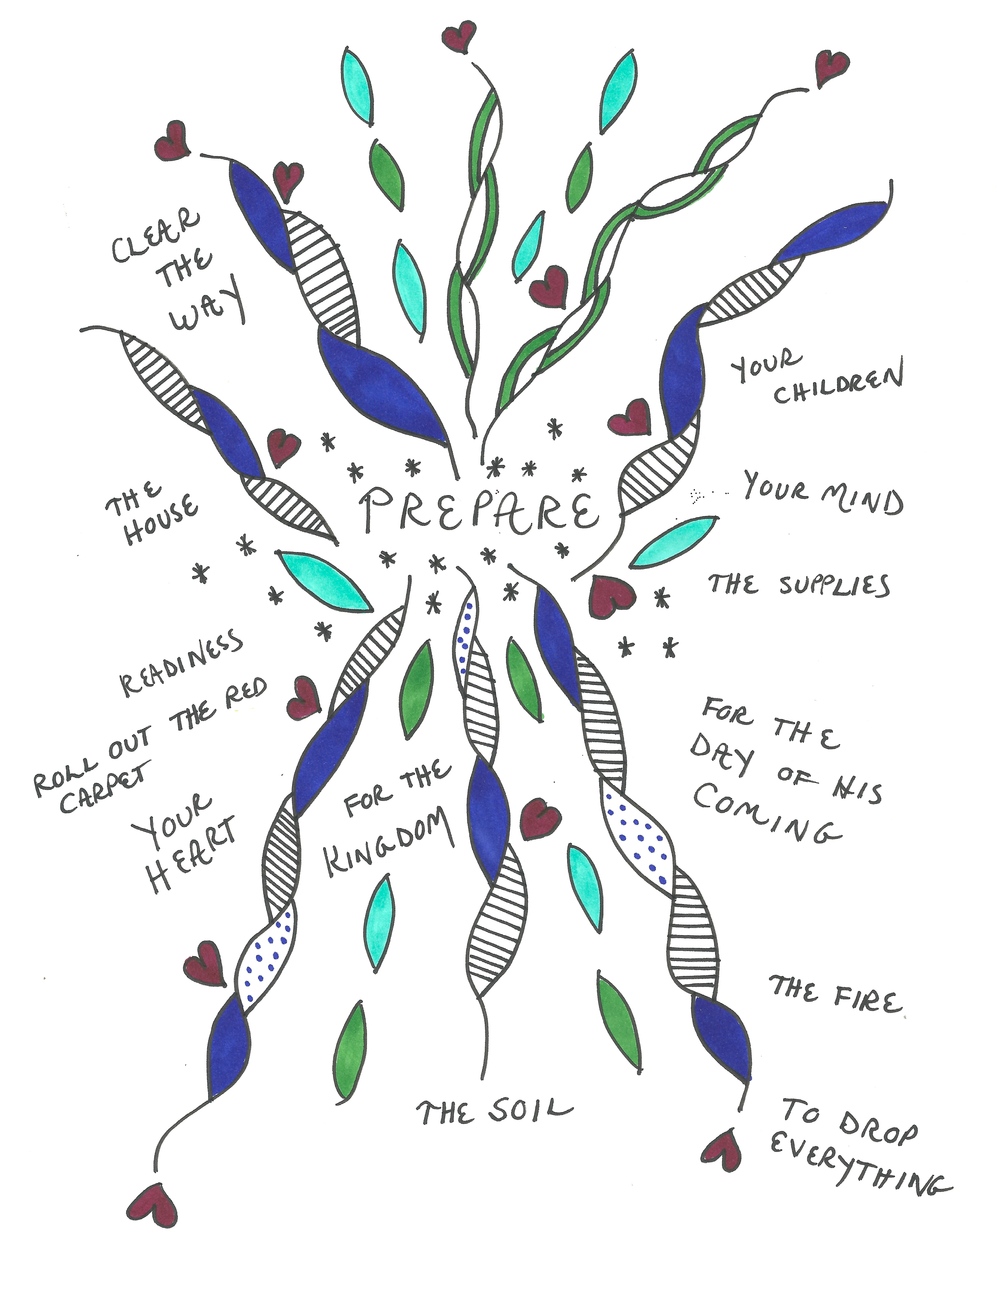 CLEAR
THE
WAY
YOUR
CHILDREN
THE
HOUSE
PREPARE
YOUR MIND
THE SUPPLIES
READINESS
ROLL OUT THE RED
CARPET
YOUR
HEART
FOR THE
KINGDOM
FOR THE
DAY OF HIS
COMING
THE FIRE
THE SOIL
TO DROP
EVERYTHING